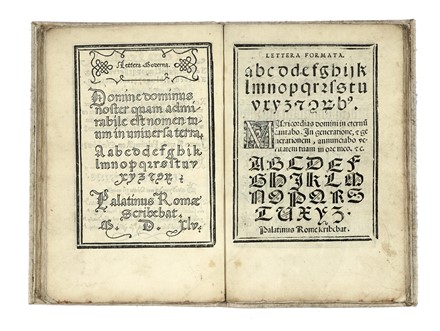 Lettera Moderna.
Domine dominus
noster quam admi
rabile est nomen tu
um in universa terra.
Aabcdefghijk
lmnopqrꝛſstuv
xyzꝛ
Palatinus Romæ
Scribebat.
M. D. XLv.
LETTERA FORMATA.
abcdefghijk
lmnopqrꝛſstu
vxyz
Misericordias domini in eternũ
cantabo. In generatione, & ge
nerationem, annunciabo ve
ritatem tuam in ore meo. &c.
ABCDEF
GHIKLM
NOPQRS
TUXYZ.
Palatinus Rome scribebat.